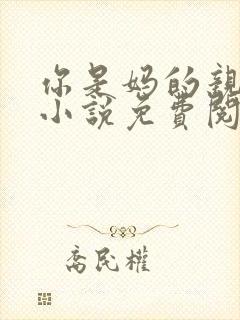 你是妈的親
小說免費閱
喬民權